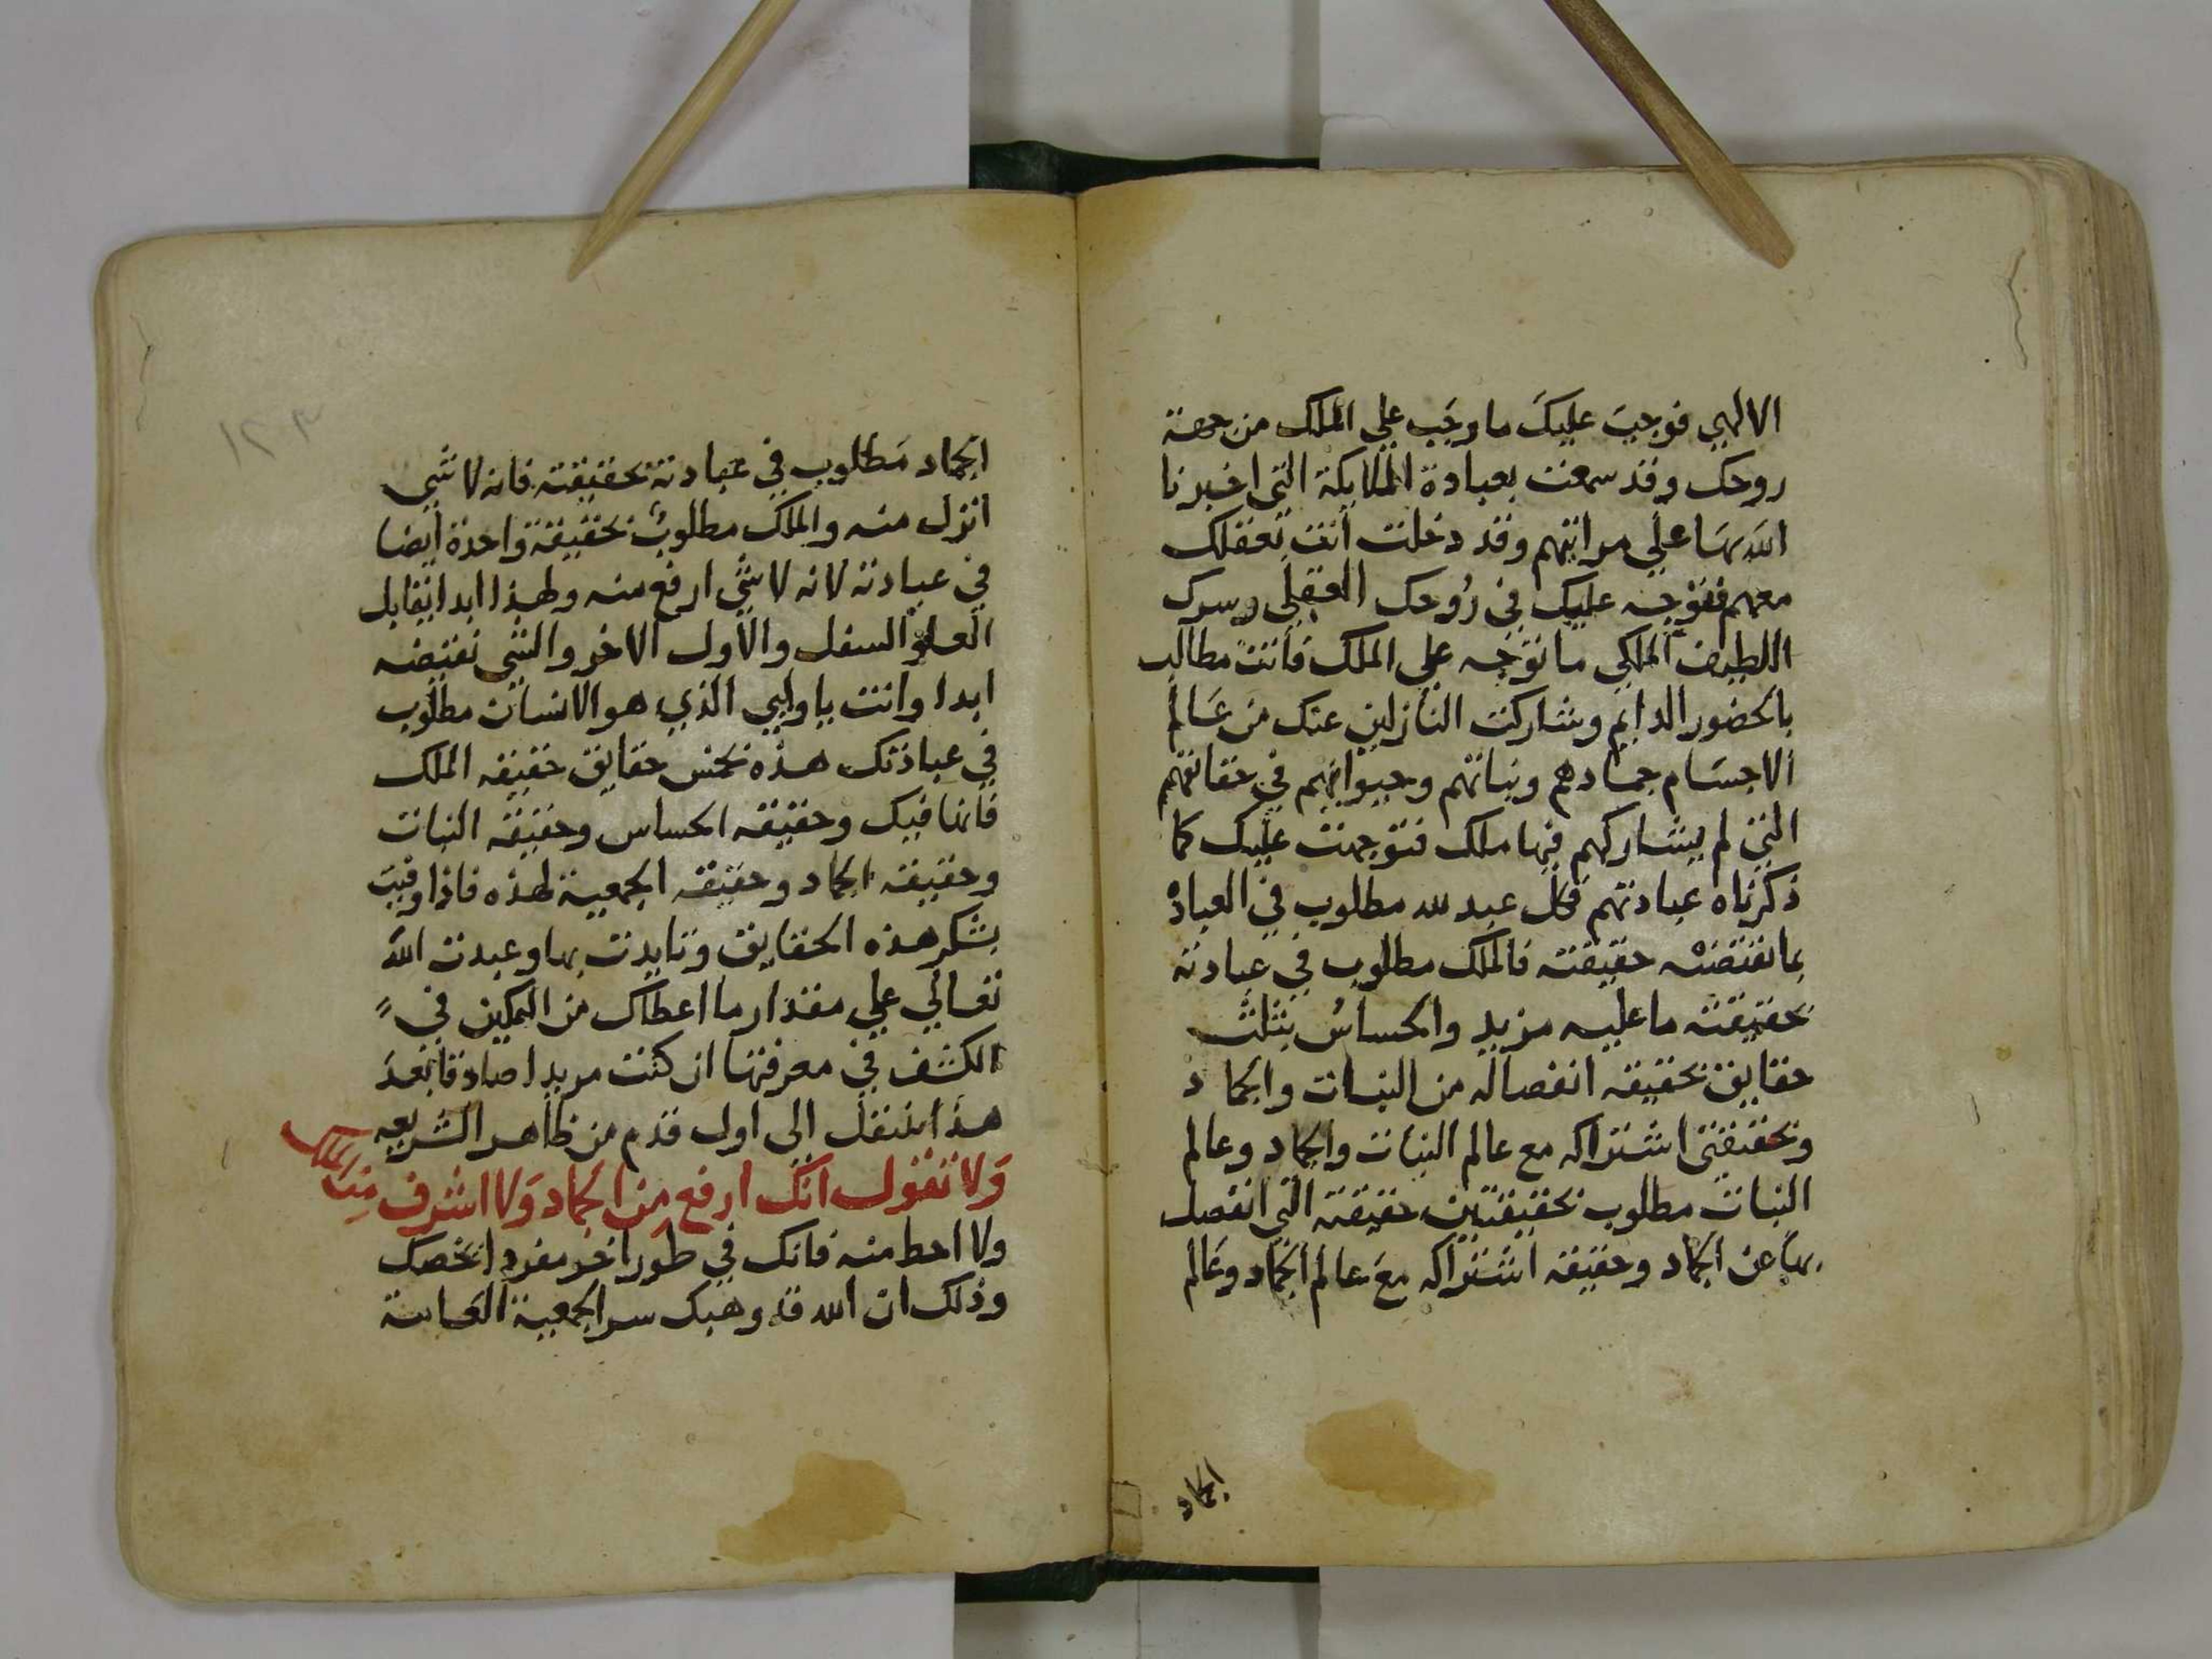 الالهي فوجبَ عليكَ ما وجَب علي الملك من جهة
روحك وقد سمعت بعبادة الملايكة التي اخبرنا
الله بهَا علي مراتبهم وقد دخلت أنت بعقلك
معهم فتوْجه عليك في رُوحك العقلي وسرك
اللطيف الملكي ما توَجه علي الملك فأنت مطالب
بالحضور الدايم وشاركت النازلين عنك من عَالم
الاجسَام جمادهم ونباتهم وحيوانهم في حقائقهم
التي لم يشاركهم فيها ملك فتوجهت عليك كما
ذكرناه عبادتهم فكل عبد لله مطلوب في العبادة
بما تقتضيْه حقيقته فالملك مطلوب في عبادته
بحقيقته ما عليه مزيد والحساسُ بثلث
حقايق بحقيقه انفصاله من النبات والجماد
وبحقيقتي اشتراكه مع عالم النبات والجماد وعالم
النبات مطلوب بحقيقتين حقيقته التي انفصل
بها عن الجماد وحقيقه اشتراكه معَ عالم الجماد وعَالم
الجماد
١٢٣
الجماد مَطلوب في عبادته بحقيقته فانه لا شي
انزل منه والملك مطلوبٌ بحقيقة واحدة أيضا
في عبادته لانه لا شي ارفع منه ولهذا ابدا يقابل
العلوْ السفل والأول الاخر والشي نقيضه
ابدا وانت ياوليي الذي هو الانسان مطلوب
في عبادتك هذه بخمس حقايق حقيقه الملك
فانها فيك وحقيقه الحساس وحقيقه النبات
وحقيقه الجماد وحقيقه الجمعية لهذه فاذا وفيت
بشكر هذه الحقايق وتايدت بها وعبدت الله
تعالي علي مقدار ما اعطاك من التمكين في
الكشف في معرفتها ان كنت مريدا صادقا فبعدَ
هذا تنتقل الى اول قدم من ظاهر الشريعه
وَلا تقول انك ارفع مِن الجماد وَلا اشرف مِن الملك
ولا احط منه فانك في طور اخر مفرد اتخصك
وذلك ان الله قد وهبك سر الجمعية العامة